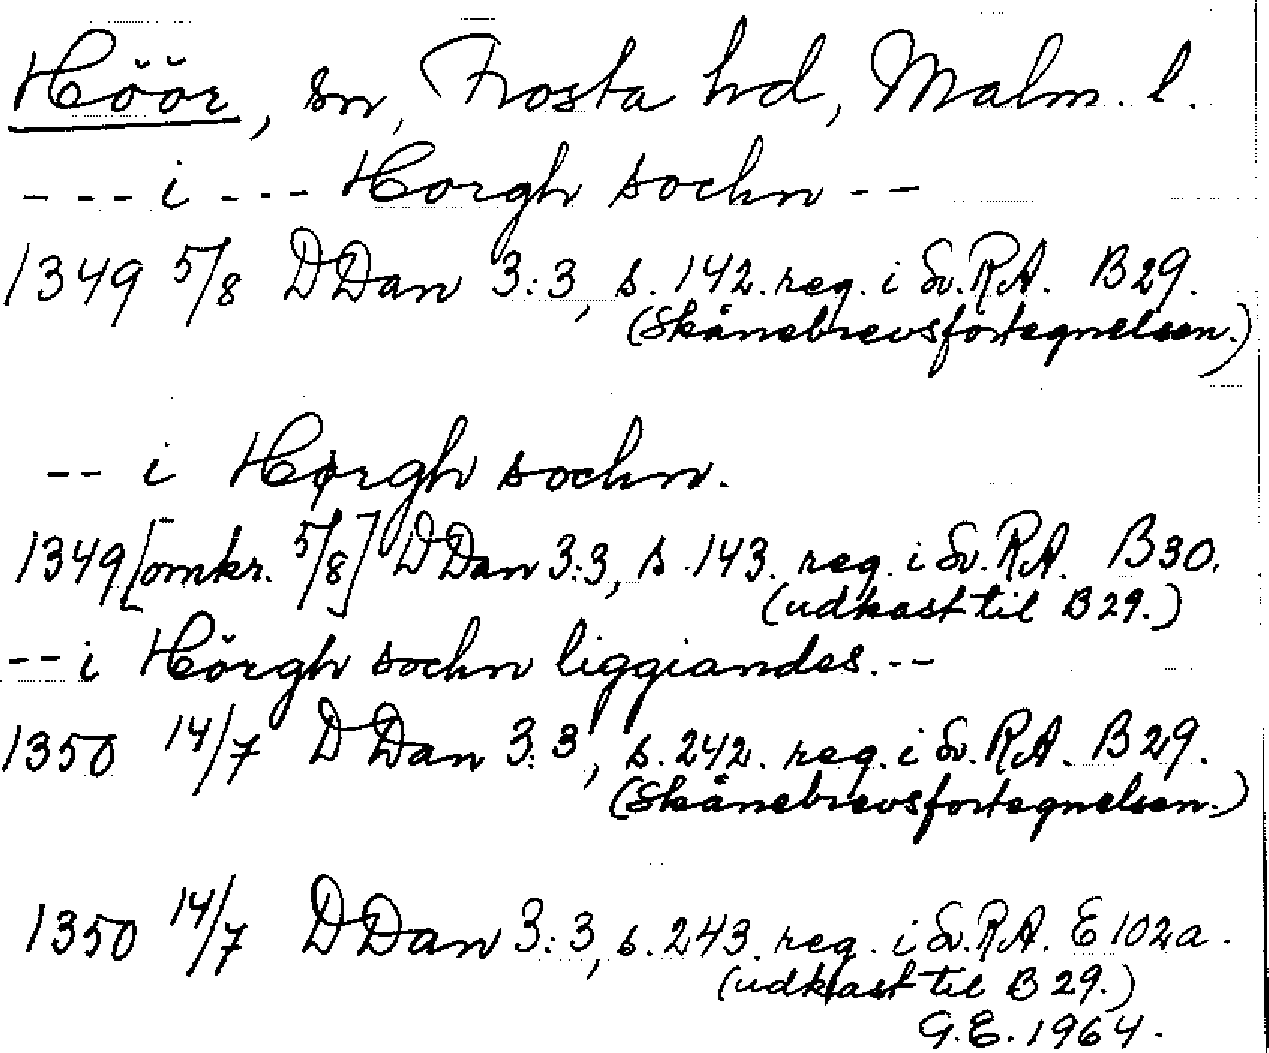 Höör, sn, Frosta hd, Malm. l.
- - - i - - - Horgh sochn - -
1349 5/8 DDan 3:3, s. 142. reg. i Sv. RA. B29.
(Skånebrevsfortegnelsen.)
- - i Hørgh sochn.
1349 [omkr. 5/8] DDan 3:3, s. 143. reg. i Sv. RA. B30.
(udkast til B29.)
- - i Hörgh sochn liggiandes. - -
1350 14/7 DDan 3:3, s. 242. reg. i Sv. RA. B29.
(Skånebrevsfortegnelsen.)
1350 14/7 DDan 3:3, s. 243. reg. i Sv. RA. E102a.
(udkast til B29.)
G.E. 1964.